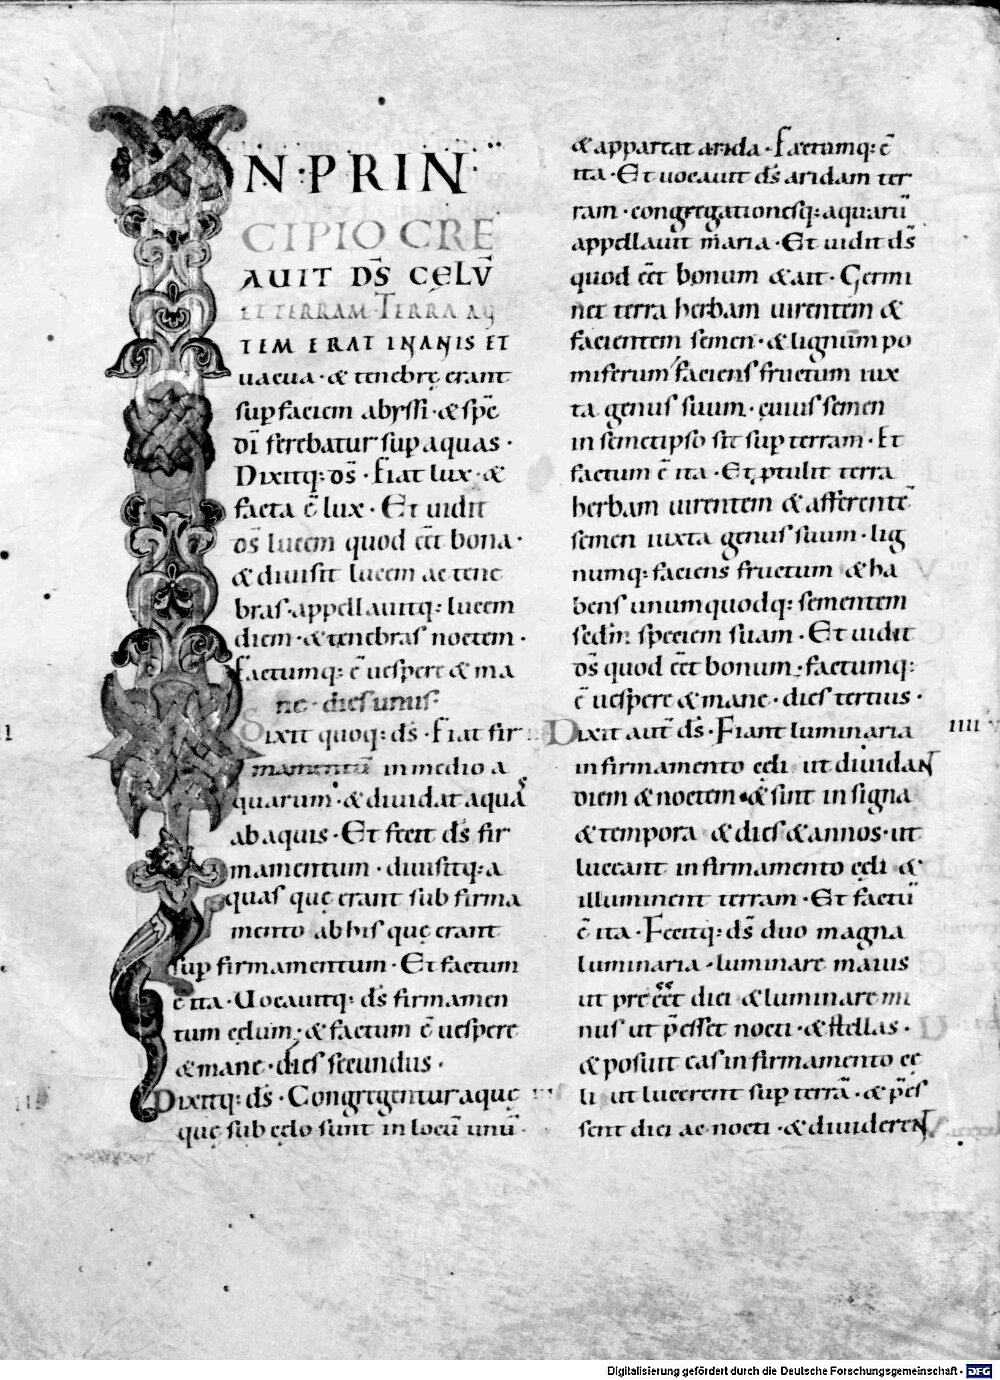 IN·PRIN
CIPIO CRE
AVIT DS̄ CĘLV̄
ET TERRAM·TERRA AU
TEM ERAT INANIS ET
uacua· & tenebrę erant
sup faciem abyssi· & sp̄c
dī ferebatur sup aquas·
Dixitq: ds̄· Fiat lux· &
facta ē lux· Et uidit
ds̄ lucem quod eēt bona·
& diuisit lucem ac tene
bras· appellauitq: lucem
diem· & tenebras noctem·
factumq: ē uespere & ma
ne· dies unus·
Dixit quoq: ds̄· Fiat fir
mamentū in medio a
quarum· & diuidat aquas
ab aquis· Et fecit ds̄ fir
mamentum· diuisitq: a
quas quę erant sub firma
mento ab his quę erant
sup firmamentum· Et factum
ē ita· Uocauitq: ds̄ firmamen
tum cęlum; & factum ē uespere
& mane· dies secundus·
III
Dixitq: ds̄· Congregentur aquę
quę sub cęlo sunt in locū unū·
& appareat arida· Factumq: ē
ita· Et uocauit ds̄ aridam ter
ram· congregationesq: aquarū
appellauit maria· Et uidit ds̄
quod eēt bonum & ait· Germi
net terra herbam uirentem &
facientem semen· & lignum po
miferum faciens fructum iux
ta genus suum· cuius semen
in semetipso sit sup terram· Et
factum ē ita· Et ptulit terra
herbam uirentem & afferentē
semen iuxta genus suum· lig
numq: faciens fructum & ha
bens unumquodq: sementem
sedm̄ speciem suam· Et uidit
ds̄ quod eēt bonum; factumq:
ē uespere & mane· dies tertius·
IIII
Dixit aut̄ ds̄· Fiant luminaria
in firmamento cęli ut diuidant
diem & noctem· & sint in signa
& tempora & dies & annos· ut
luceant in firmamento cęli &
illuminent terram· Et factū
ē ita· Fecitq: ds̄ duo magna
luminaria· luminare maius
ut preeēt diei & luminare mi
nus ut p̄esset nocti· & stellas·
& posuit eas in firmamento cę
li ut lucerent sup terrā· & p̄es
sent diei ac nocti· & diuiderent
Digitalisierung gefördert durch die Deutsche Forschungsgemeinschaft · DFG